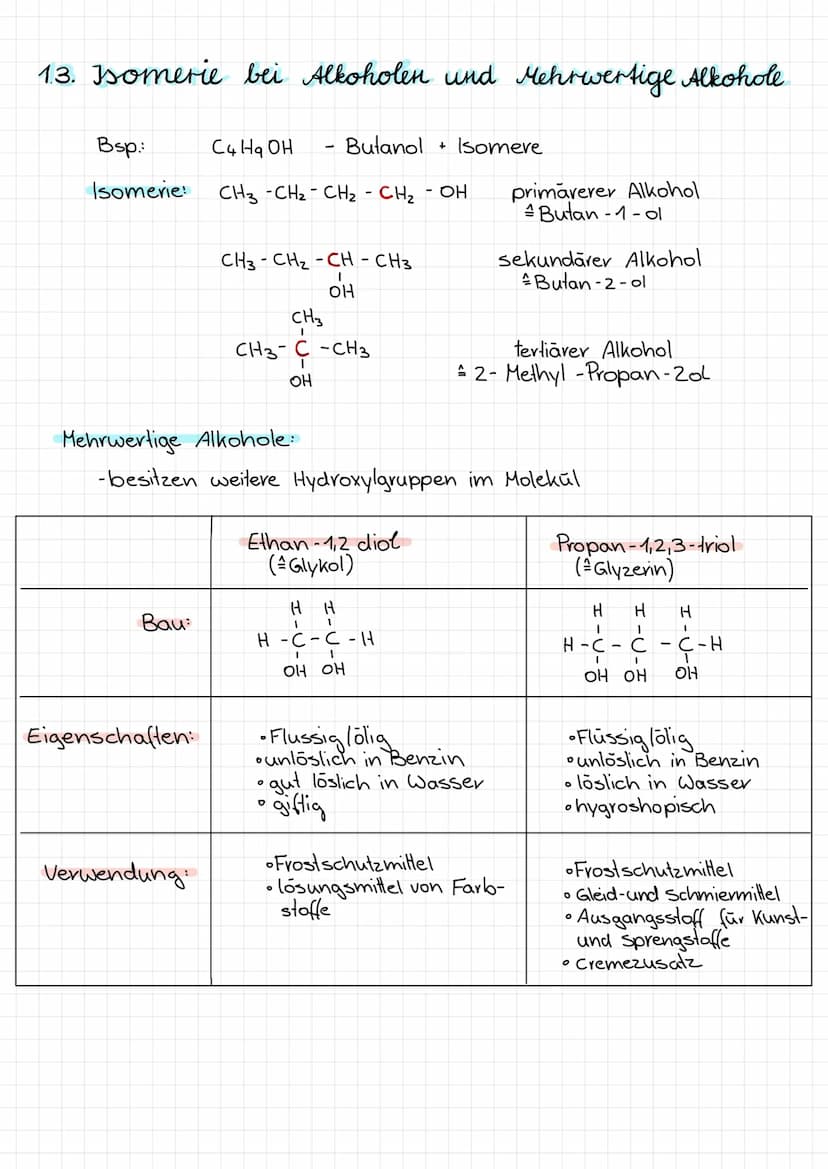 1.3. Isomerie bei Alkoholen und Mehrwertige Alkohole
Bsp.: C4H9OH - Butanol + Isomere
Isomerie: CH3-CH2-CH2-CH2-OH primärerer Alkohol
≙ Butan-1-ol
CH3-CH2-CH-CH3 sekundärer Alkohol
OH ≙ Butan-2-ol
CH3
CH3-C-CH3 tertiärer Alkohol
OH ≙ 2-Methyl-Propan-2ol
Mehrwertige Alkohole:
-besitzen weitere Hydroxylgruppen im Molekül
Ethan-1,2 diol
(≙Glykol)
Propan-1,2,3-triol
(≙Glyzerin)
Bau:
H H
H-C-C-H
OH OH
H H H
H-C-C-C-H
OH OH OH
Eigenschaften:
•Flussig/ölig
•unlöslich in Benzin
•gut löslich in Wasser
•giftig
•Flüssig/ölig
•unlöslich in Benzin
•löslich in Wasser
•hygroshopisch
Verwendung:
•Frostschutzmittel
•lösungsmittel von Farb-
stoffe
•Frostschutzmittel
•Gleid-und Schmiermittel
•Ausgangsstoff für Kunst-
und Sprengstoffe
•Cremezusatz